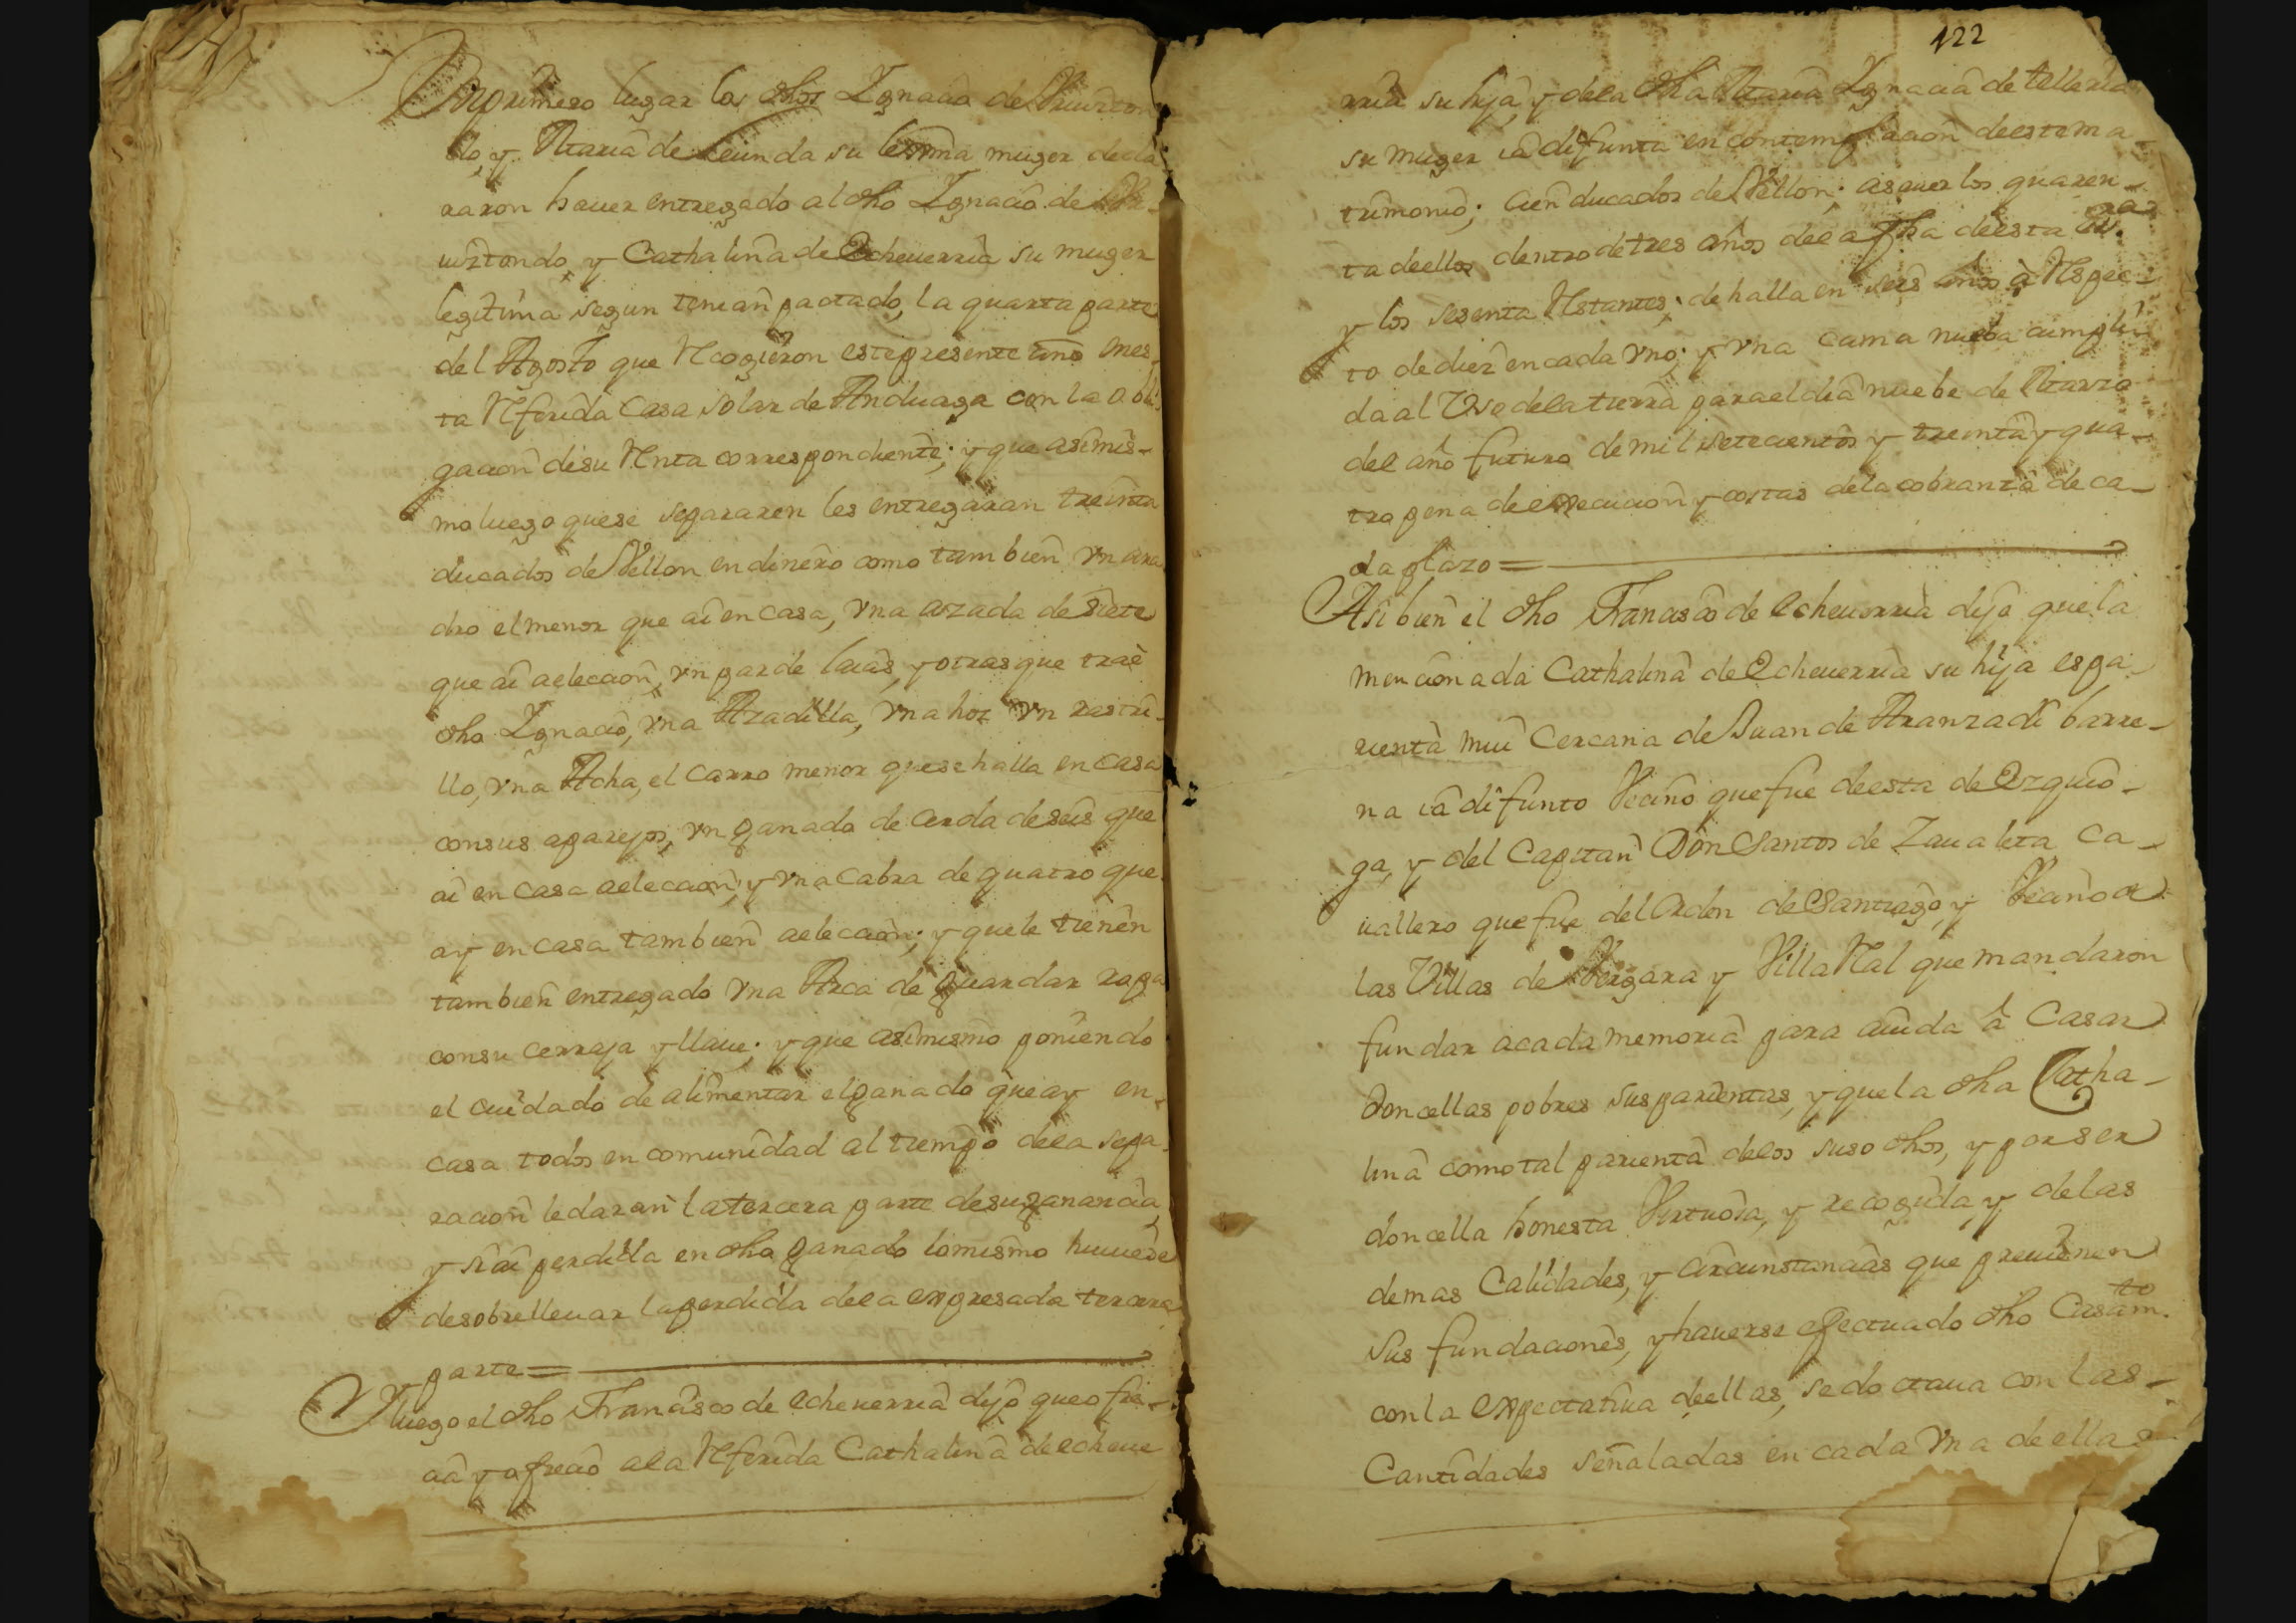 Enprimero lugar los dhos Ygnacio de
do, y Maria de Leunda su lexma muger decla
raron hauer entregado al dho Ygnacio de
uiztondo, y Cathalina de Echeuerria su muger
legitima segun tenian pactado, la quarta parte
del Agosto que Rcogieron este presente año enes
ta Rferida Casa solar de Anduaga con la obli
gacion de su Rnta correspondiente; y que asimis-
mo luego que se separaren les entregaran treinta
ducados de Vellon en dinero como tambien vn ara
dro el menor que ai en casa, vna azada de siete
que ai a eleccion, vn par de laias, y otras que trae
dho Ygnacio, vna Azadilla, vna hoz vn rastri-
llo, vna Acha, el carro menor que se halla en casa
con sus aparejos, vn ganado de cerda de seis que
ai en casa a eleccion; y vna cabra de quatro que
ay en casa tambien a eleccion; y que le tienen
tambien entregado vna Arca de guardar ropa
con su cerraja y llaue; y que asimismo poniendo
el cuidado de alimentar el ganado que ay en
casa todos en comunidad al tiempo dela sepa
racion le daran la tercera parte de su ganancia,
y si ai perdida en dho ganado lo mismo huuiere
de sobrelleuar la perdida dela expresada tercera
parte =
Y luego el dho Francisco de Echeuerria dijo que ofre-
cia y ofrecio a la Rferida Cathalina de echeue
122
rria su hija, y dela dha Maria Ygnacia de telleria
su muger ia difunta en contemplacion de este ma
trimonio; cien ducados de Vellon; asauer los quaren-
ta de ellos dentro de tres años dela fha de esta Esra
y los sesenta Rstantes; de halla en seis años à Rspec-
to de diez en cada vno; y vna cama nueba cumpli
da al Vso dela tierra para el dia nuebe de Marzo
del año futuro de mil setecientos y treinta y qua-
tro pena de execucion y costas dela cobranza de ca-
da plazo =
Asi bien el dho Francisco de Echeuerria dijo que la
mencionada Cathalina de Echeuerria su hija es pa
rienta mui Cercana de Juan de Aranzadi barre-
na ia difunto Vecino que fue de esta de Ezquio-
ga, y del Capitan Don Santos de Zaualeta Ca-
uallero que fue del Orden de Santiago, y Vecino de
las Villas de Vergara y Villa Ral que mandaron
fundar a cada memoria para aiuda à Casar
Doncellas pobres sus parientas, y que la dha Catha-
lina como tal parienta delos suso dhos, y por ser
doncella honesta Virtuosa, y recogida, y de las
demas Calidades, y circunstancias que preuienen
sus fundaciones, y hauerse efectuado dho Casamto.
con la expectatiua de ellas, se doctaua con las-
Cantidades señaladas en cada vna de ellas